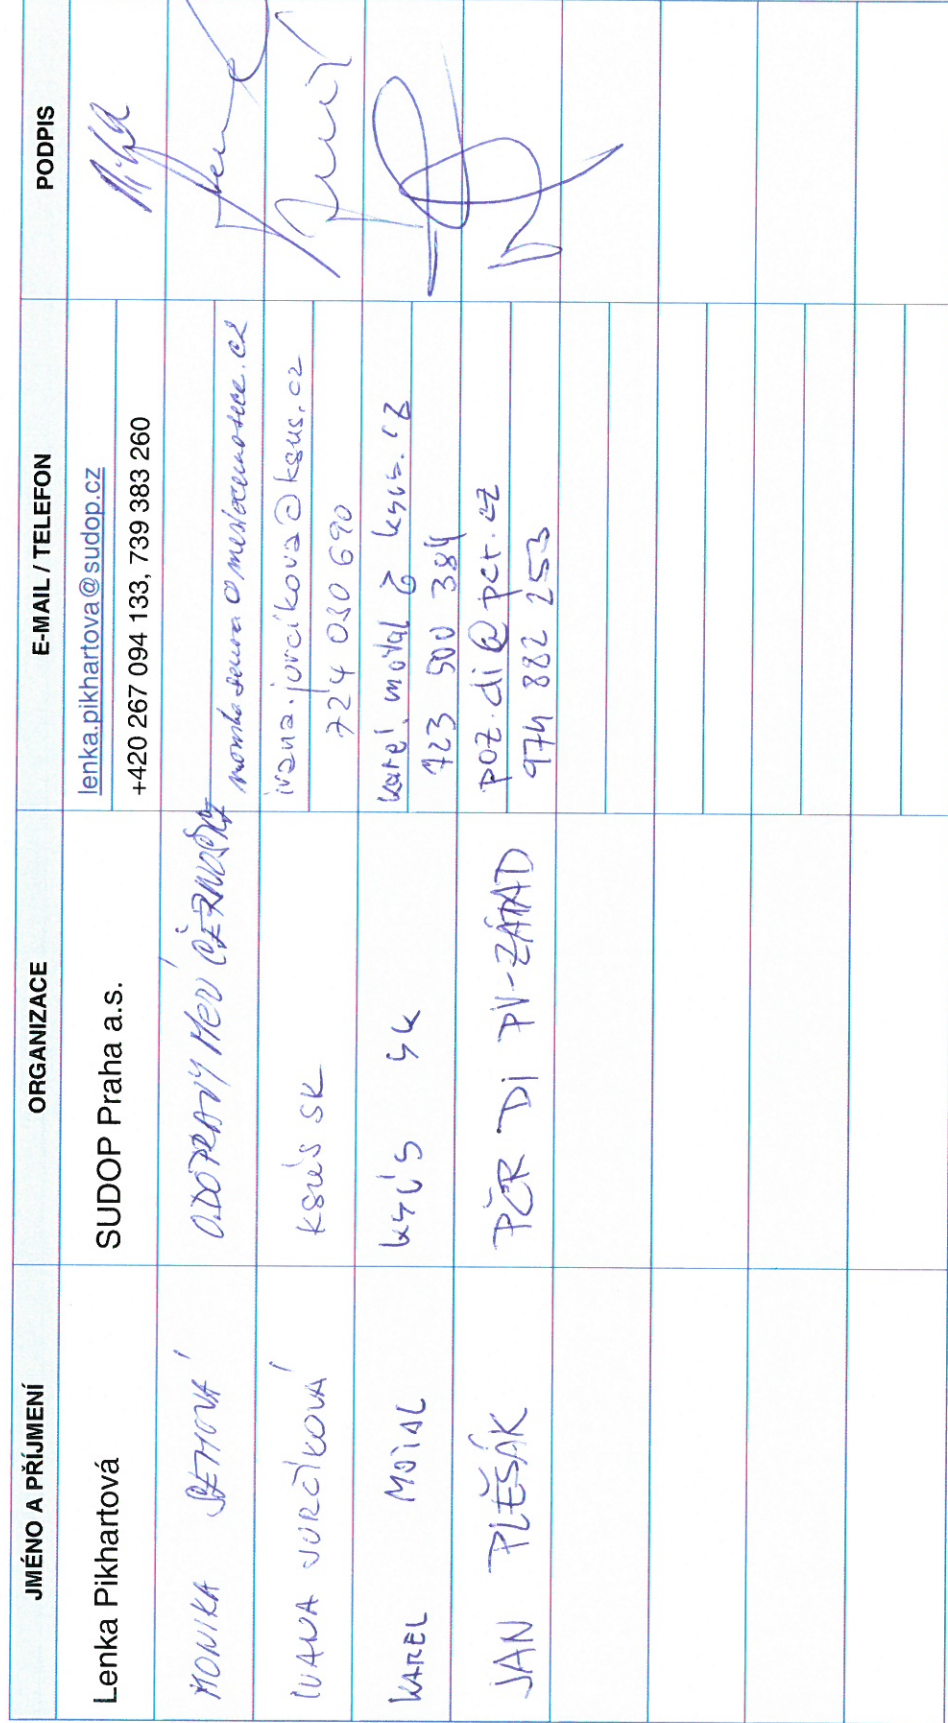 JMÉNO A PŘÍJMENÍ ORGANIZACE E-MAIL / TELEFON PODPIS
Lenka Pikhartová SUDOP Praha a.s. lenka.pikhartova@sudop.cz
+420 267 094 133, 739 383 260
MONIKA O.DOPRAVY MěÚ ČERNOŠICE
IVANA JURČÍKOVÁ KSÚS SK ivana.jurcikova@ksus.cz
724 030 690
KAREL MOTAL KSÚS SK karel.motal@ksus.cz
723 500 384
JAN PLEŠÁK PČR DI PV-ZÁPAD poz.di@pcr.cz
974 882 253